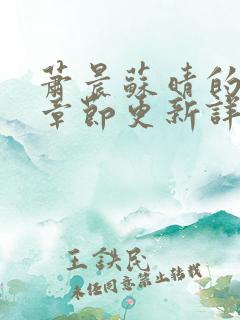 萧晨蘇晴的
章節更新詳
王鉄民
未经同意禁止转载